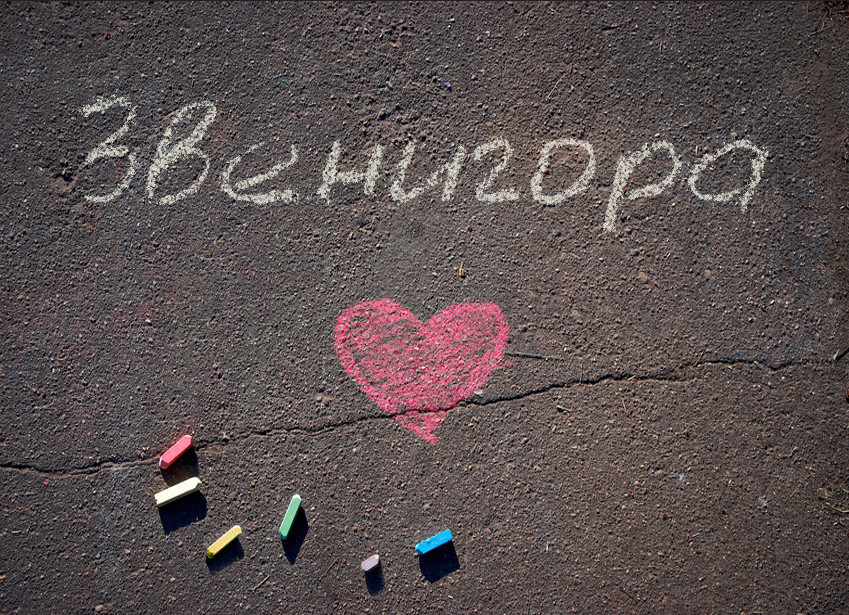 Звенигора